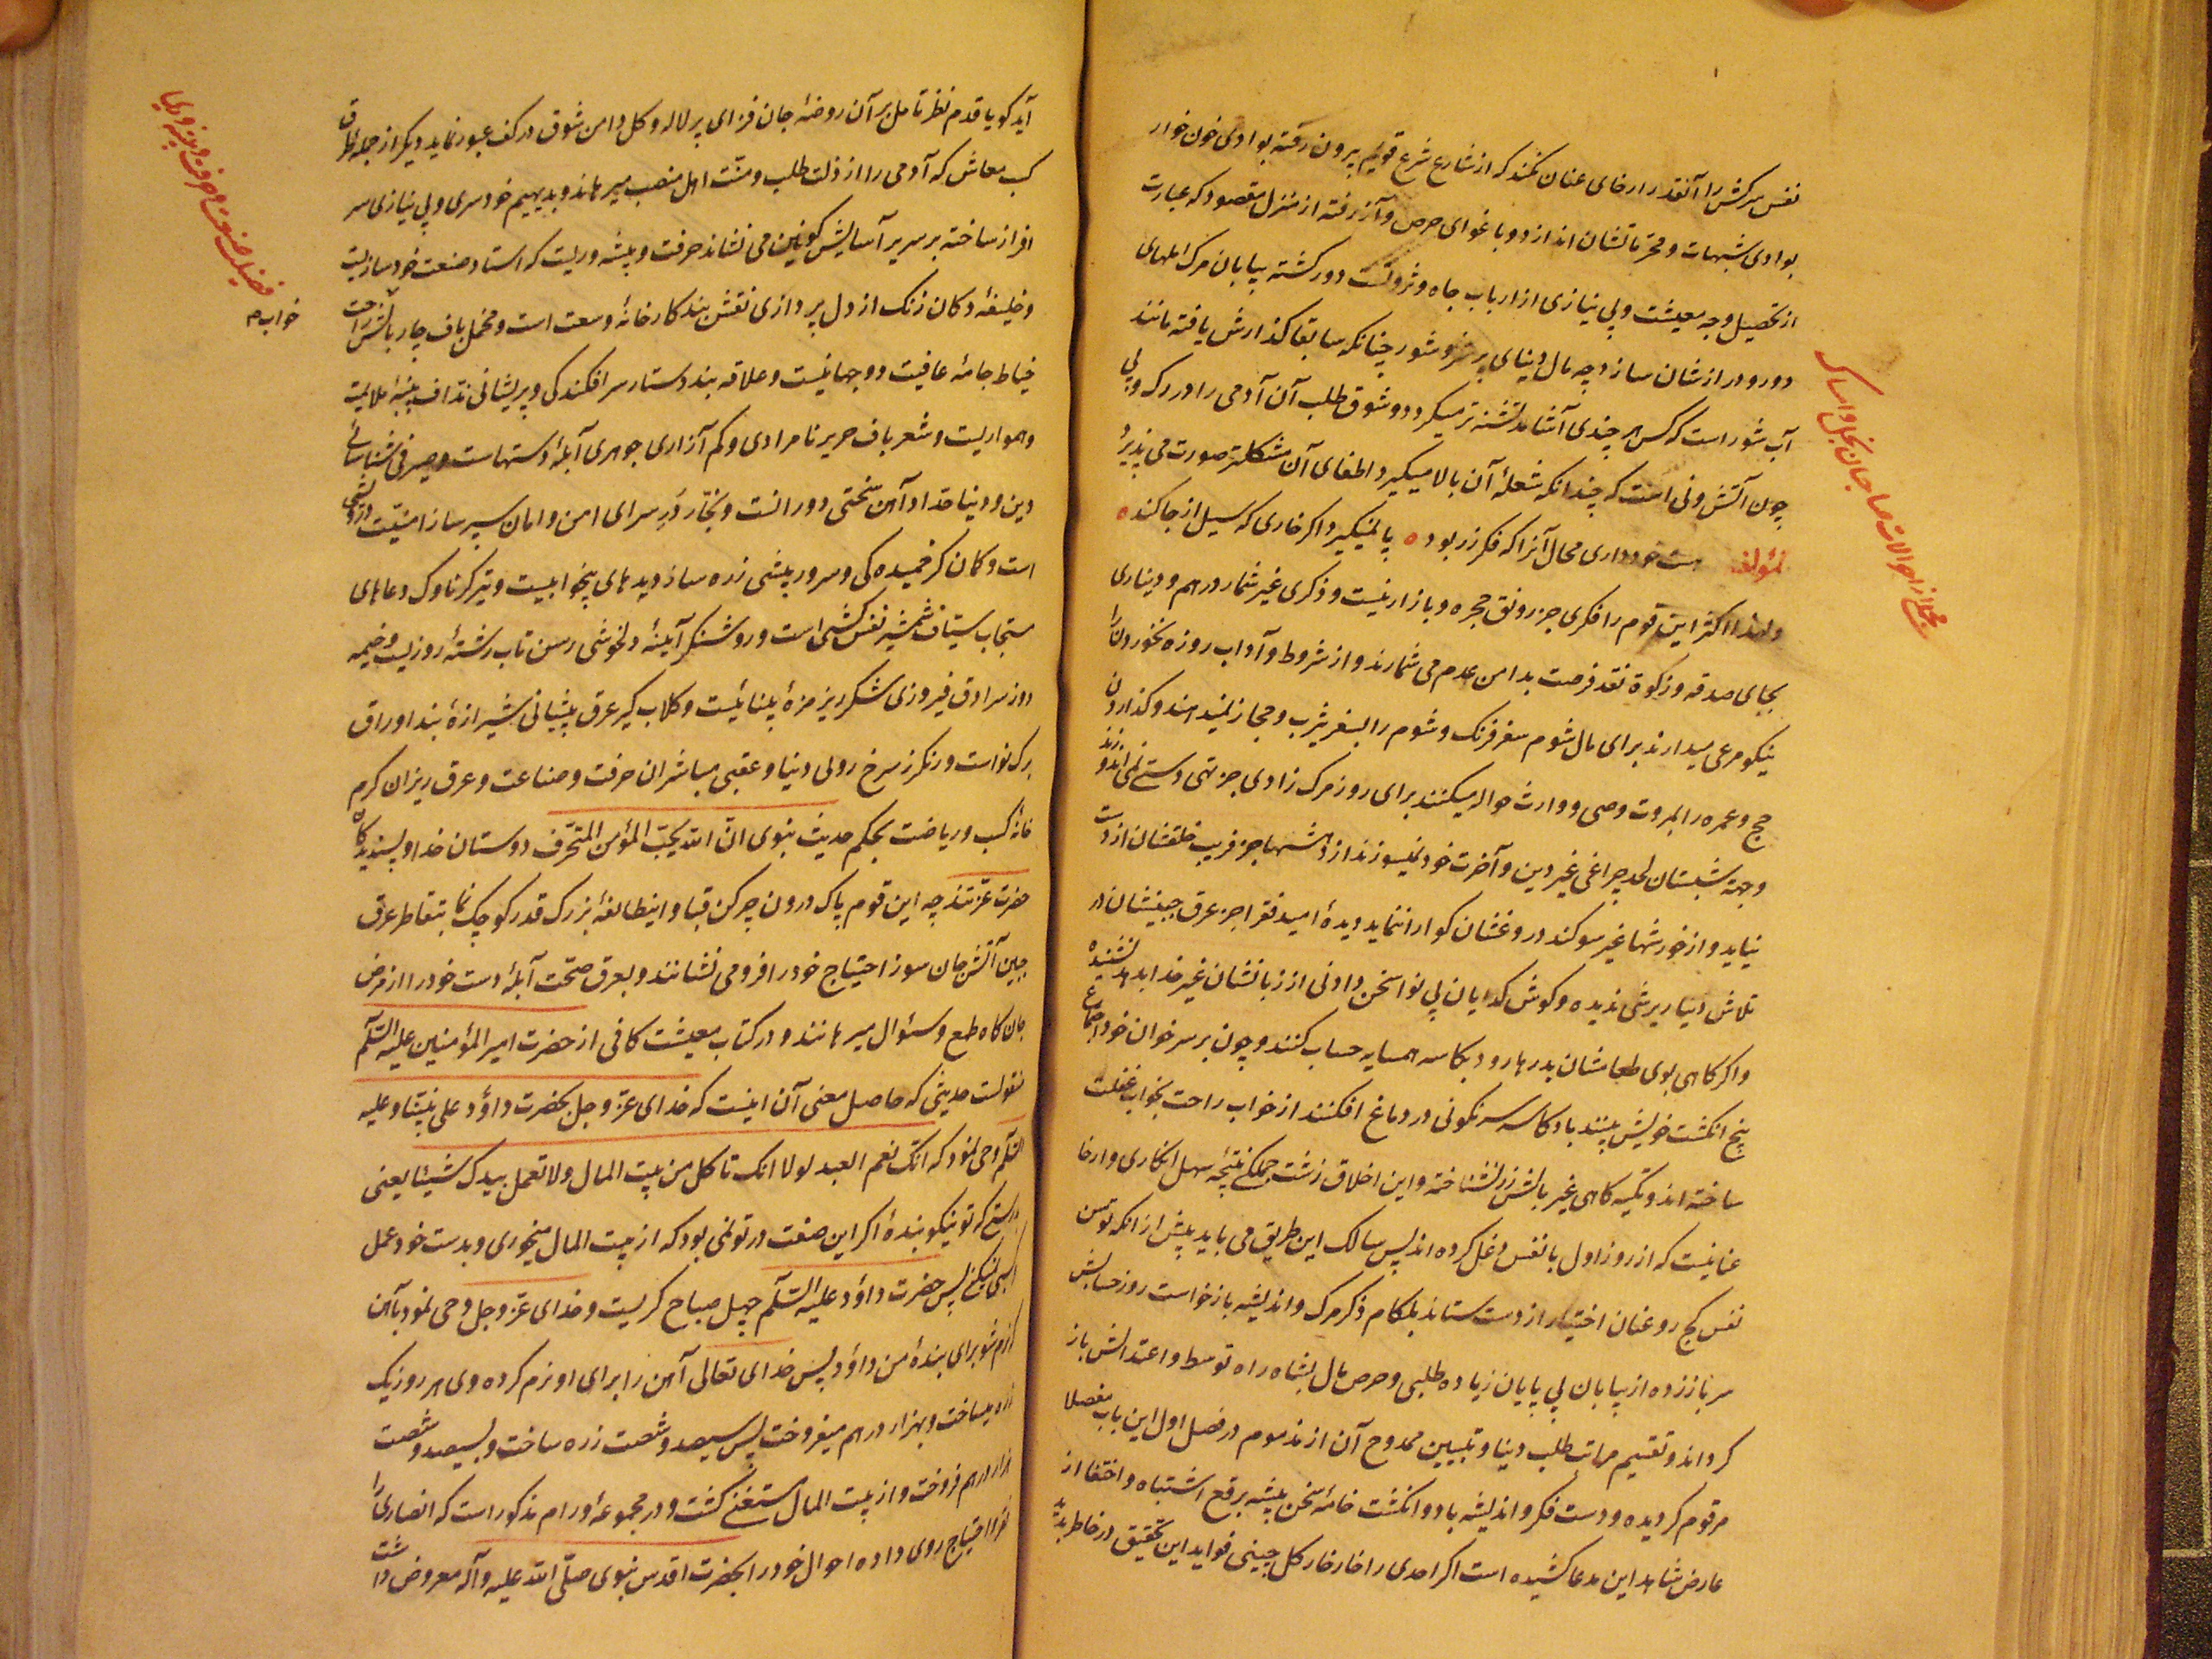 نفس سرکش را آنقدر ارخای عنان نکند که از شارع شرع قویم بیرون رفته بوادی خون خوار
بوادی شبهات و محرماتشان اندازد و باغوای حرص و آز رفته از منزل مقصود که عبارت
از تحصیل وجه معیشت و بی نیازی از ارباب جاه و ثروتست دور کشته بیابان مرک املهای
دور و درازشان سازد چه مال دنیای پر شر و شور چنانکه سابقا کذارش یافته مانند
آب شور است که کس هر چندی آشامد تشنه تر میکردد و شوق طلب آن آدمی را در رک و پی
چون آتش و نی است که چندانکه شعلهٔ آن بالا میکیرد اطفای آن مشکلتر صورت می پذیرد
لمؤلفه هست خودداری محال آنرا که فکر زر بود ه پا نمیکیرد اکر خاری که سیل از جا کند ه
و لهذا اکثر این قوم را فکری جز رونق حجره و بازار نیست و ذکری غیر شمار درهم و دیناری
بجای صدقه و زکوة نقد فرصت بدامن عدم می شمارند و از شروط و آداب روزه نخوردن را
نیکو مرعی میدارند برای مال شوم سفر فرنک و شوم را بسفر یثرب و حجاز نمیدهند و کذاردن
حج و عمره را بمروت وصی و وارث حواله میکنند برای روز مرک زادی جز تهی دستی نمی اندوزند
و جهة شبستان لحد چراغی غیر دین و آخرت خود نمیسوزند از دانشها جز فریب خلقشان از دست
نیاید و از خورشها غیر سوکند دروغشان کوارا ننماید دیدهٔ امید فقرا جز عرق جبینشان در
تلاش دنیا ریزشی ندیده و کوش کدایان بی نوا سخن دادنی از زبانشان غیر خدا بدهد نشنیده
و اکر کاهی بوی طعامشان بدر رود بکاسه همسایه حساب کنند و چون بر سر خوان خود اجتماع
پنج انکشت خویش بینند باد کاسه سرنکونی در دماغ افکنند از خواب راحت بخواب غفلت
ساخته اند و تکیه کاهی بغیر بالش زر نشناخته و این اخلاق زشت جملکی نتیجهٔ سهل انکاری و ارخا
عنانیست که از روز اول با نفس دغل کرده اند پس سالک این طریق می باید پیش از آنکه توسن
نفس کج رو عنان اختیار از دست ستاند بلکام ذکر مرک و اندیشه بازخواست روز حسابش
سر باز زده از بیابان بی پایان زیاده طلبی و حرص مال بشاه راه توسط و اعتدالش باز
کرداند و تقسیم مراتب طلب دنیا و تبیین ممدوح آن از مذموم در فصل اول این باب مفصلا
مرقوم کردیده و دست فکر و اندیشه با دو انکشت خامهٔ سخن پیشه برقع اشتباه و اختفا از
عارض شاهد این مدعا کشیده است اکر احدی را خارخار کل چینی فواید این تحقیق در خاطر پدید
مجملی از احوالات صاحبان بخل و امساک
آید کو یا قدم نظر تامل بر آن روضهٔ جان فزای پر لاله و کل دامن شوق در کف عبور نماید دیکر از جمله طرق
کسب معاش که آدمی را از ذلت طلب و منت اهل منصب میرهاند و بدیهیم خودسری و بی نیازی سر
افراز ساخته بر سریر آسایش کونین می نشاند حرفت و پیشه وریست که استاد صنعت خود سازیست
و خلیفهٔ دکان زنک از دل پردازی نقش بند کارخانهٔ وسعت است و مخمل باف چار بالش راحت
خیاط جامهٔ عافیت دو جهانیست و علاقه بند دستار سرافکندکی و پریشانی نداف پنبهٔ ملایمت
و همواریست و شعرباف حریر نامرادی و کم آزاری جوهری آبلهٔ دستهاست و صیرفی شناسائی
دین و دنیا حداد آهن سختی دورانست و نجار در سرای امن و امان سپرساز امنیت درویشی
است و کمان کر خمیده کی و سرور پیشی زره ساز دیدهای بیخوابیست و تیرکر ناوک دعاهای
مستجاب سیاف شمشیر نفس کشی است و روشنکر آینهٔ دلخوشی رسن تاب رشتهٔ روزیست و خیمه
دوز سرادق فیروزی شکر ریز مزهٔ بینائیست و کلاب کیر عرق پیشانی شیرازهٔ بند اوراق
برک نواست و رنکرز سرخ روئی دنیا و عقبی مباشران حرفت و صناعت و عرق ریزان کرم
خانهٔ کسب و ریاضت بحکم حدیث نبوی انّ الله یحبّ المؤمن المتحرّف دوستان خدا و پسندیدکان
حضرت عزتند چه این قوم پاک درون چرکن قبا و این طایفهٔ بزرک قدر کوچک نما بتقاطر عرق
جبین آتش جان سوز احتیاج خود را فرو می نشانند و بعرق صحّت آبلهٔ دست خود را از مرض
جان کاه طمع و سئوال میرهانند و در کتاب معیشت کافی از حضرت امیر المؤمنین علیه السلام
منقولست حدیثی که حاصل معنی آن اینست که خدای عزّ و جل بحضرت داؤد علی نبینا و علیه
السلام وحی نمود که انک نعم العبد لولا انک تاکل من بیت المال ولا تعمل بیدک شیئا یعنی
بدرستی که تو نیکو بندهٔ اکر این صفت در تو نمی بود که از بیت المال میخوری و بدست خود عمل
کسبی نمیکنی پس حضرت داؤد علیه السلام چهل صباح کریست و خدای عزّ و جل وحی نمود بآهن
که نرم شو برای بندهٔ من داؤد پس خدای تعالی آهن را برای او نرم کرده وی هر روز یک
زره میساخت و بهزار درهم میفروخت پس سیصد و شصت زره ساخت و بسیصد و شصت
هزار درهم فروخت و از بیت المال مستغنی کشت و در مجموعهٔ ورام مذکور است که انصاری را
فقر و احتیاج روی داده احوال خود را بحضرت اقدس نبوی صلّی الله علیه و آله معروض داشت
فضیلت صنعت و حرفت و پیشه وری
خواب م